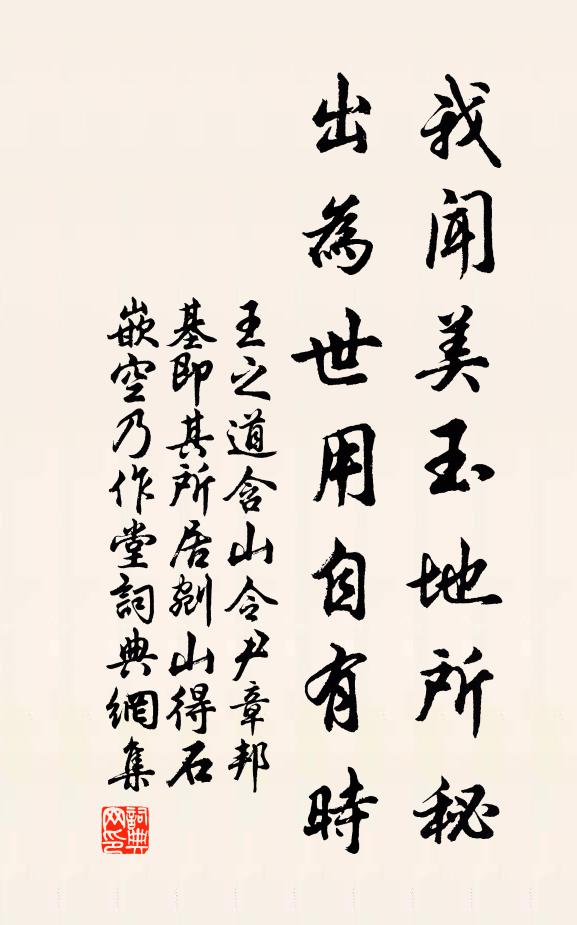 我聞美玉地所秘
出為世用自有時
王之道含山令尹章邦
基即其所居剜山得石
嵌空乃作堂詞典網集
詞典網印